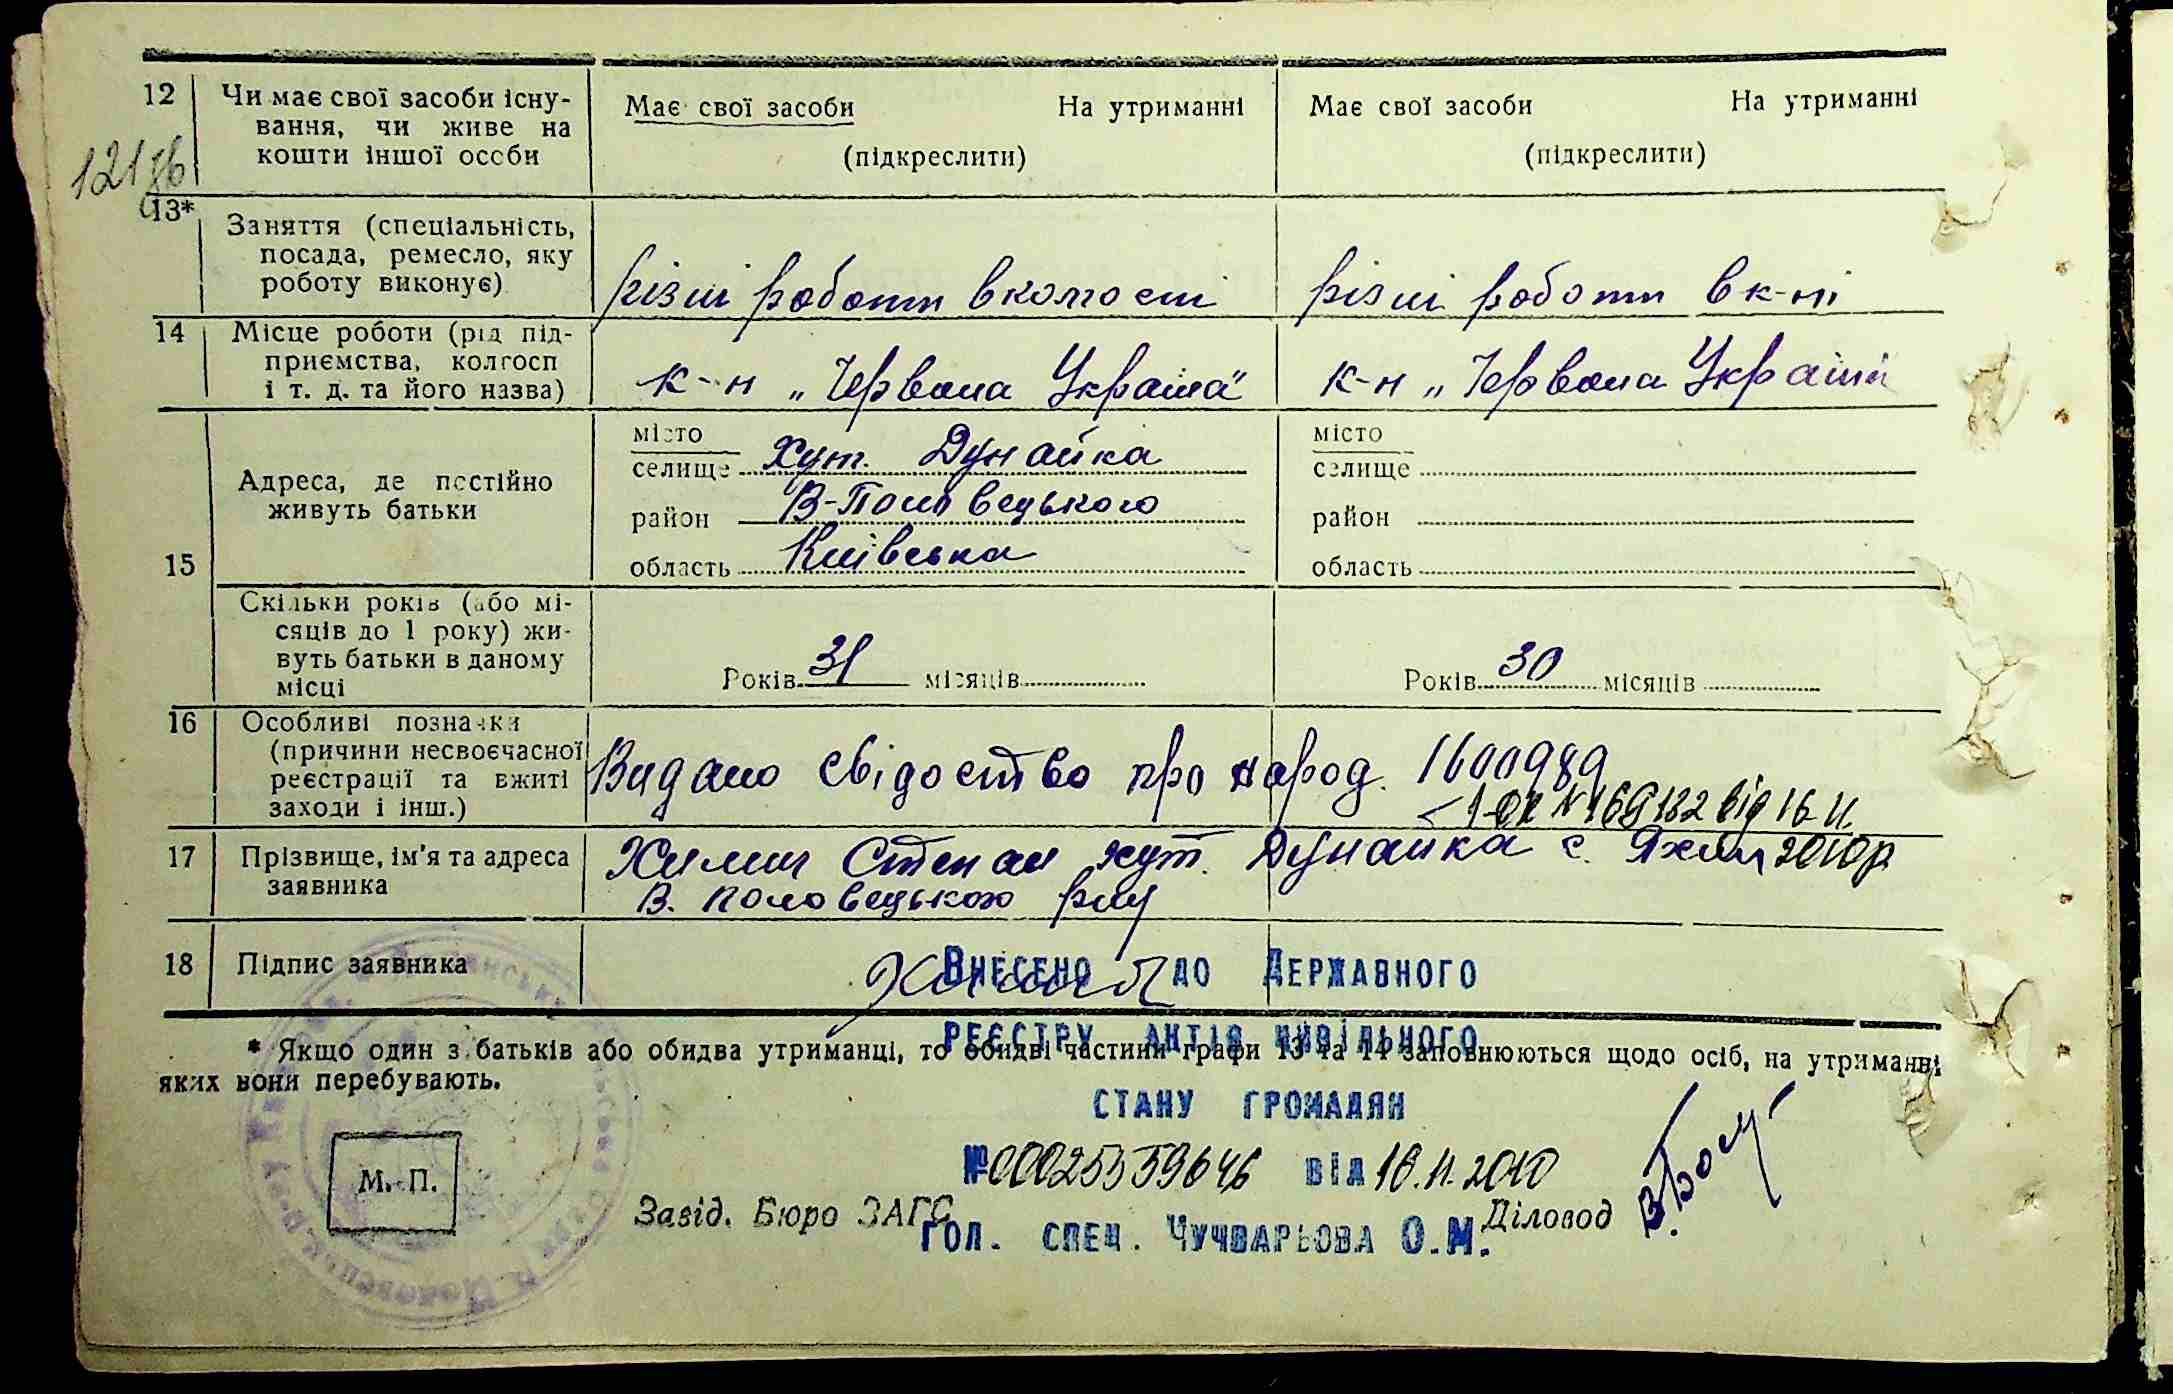 12 Чи має свої засоби існу-
вання, чи живе на
кошти іншої особи
Має свої засоби На утриманні
(підкреслити)
Має свої засоби На утриманні
(підкреслити)
121
13* Заняття (спеціальність,
посада, ремесло, яку
роботу виконує)
різні роботи в колгоспі
різні роботи в к-пі
14 Місце роботи (рід під-
приємства, колгосп
і т. д. та його назва)
к-п „Червона Україна"
к-п „Червона Україна
15 Адреса, де постійно
живуть батьки
місто
селище Хут. Дунайка
район В-Половецького
область Київська
місто
селище
район
область
Скільки років (або мі-
сяців до 1 року) жи-
вуть батьки в даному
місці
Років 31 місяців
Років 30 місяців
16 Особливі позначки
(причини несвоєчасної
реєстрації та вжиті
заходи і інш.)
Видано свідоство про народ. 1600989
№ 169132 від 16.11.
2010р
17 Прізвище, ім'я та адреса
заявника
Химич Степан хут. Дунайка с.
В. Половецького р-ну
18 Підпис заявника
Внесено до Державного
реєстру актів цивільного
стану громадян
№ 00025559646 від 16.11.2010
Гол. спец. Чучварьова О.М.
* Якщо один з батьків або обидва утриманці, то обидві частини графи 13 та 14 заповнюються щодо осіб, на утриманні
яких вони перебувають.
М. П.
Завід. Бюро ЗАГС
Діловод